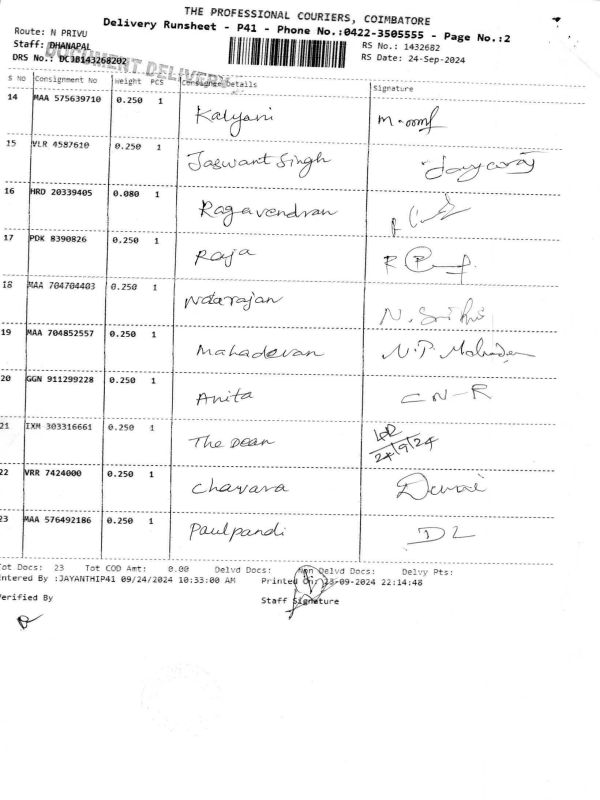 THE PROFESSIONAL COURIERS, COIMBATORE
Delivery Runsheet - P41 - Phone No.:0422-3505555 - Page No.:2
Route: N PRIVU
Staff: DHANAPAL
RS No.: 1432682
DRS No.: DCJB143268202
RS Date: 24-Sep-2024
DOCUMENT DELIVERY
S NO Consignment No Weight PCS Consignee Details Signature
14 MAA 575639710 0.250 1 Kalyani
15 VLR 4587610 0.250 1 Jaswant Singh Jayaraj
16 HRD 20339405 0.080 1 Ragavendran
17 PDK 8390826 0.250 1 Raja R
18 MAA 704704403 0.250 1 Ndarajan N. Srithi
19 MAA 704852557 0.250 1 Mahadevan N.P. Mahadevan
20 GGN 911299228 0.250 1 Anita CN-R
21 IXM 303316661 0.250 1 The Dean 24/9/24
22 VRR 7424000 0.250 1 Chavara
23 MAA 576492186 0.250 1 Paulpandi DL
Tot Docs: 23 Tot COD Amt: 0.00 Delvd Docs: Non Delvd Docs: Delvy Pts:
Entered By :JAYANTHIP41 09/24/2024 10:33:00 AM Printed On: 23-09-2024 22:14:48
Verified By Staff Signature